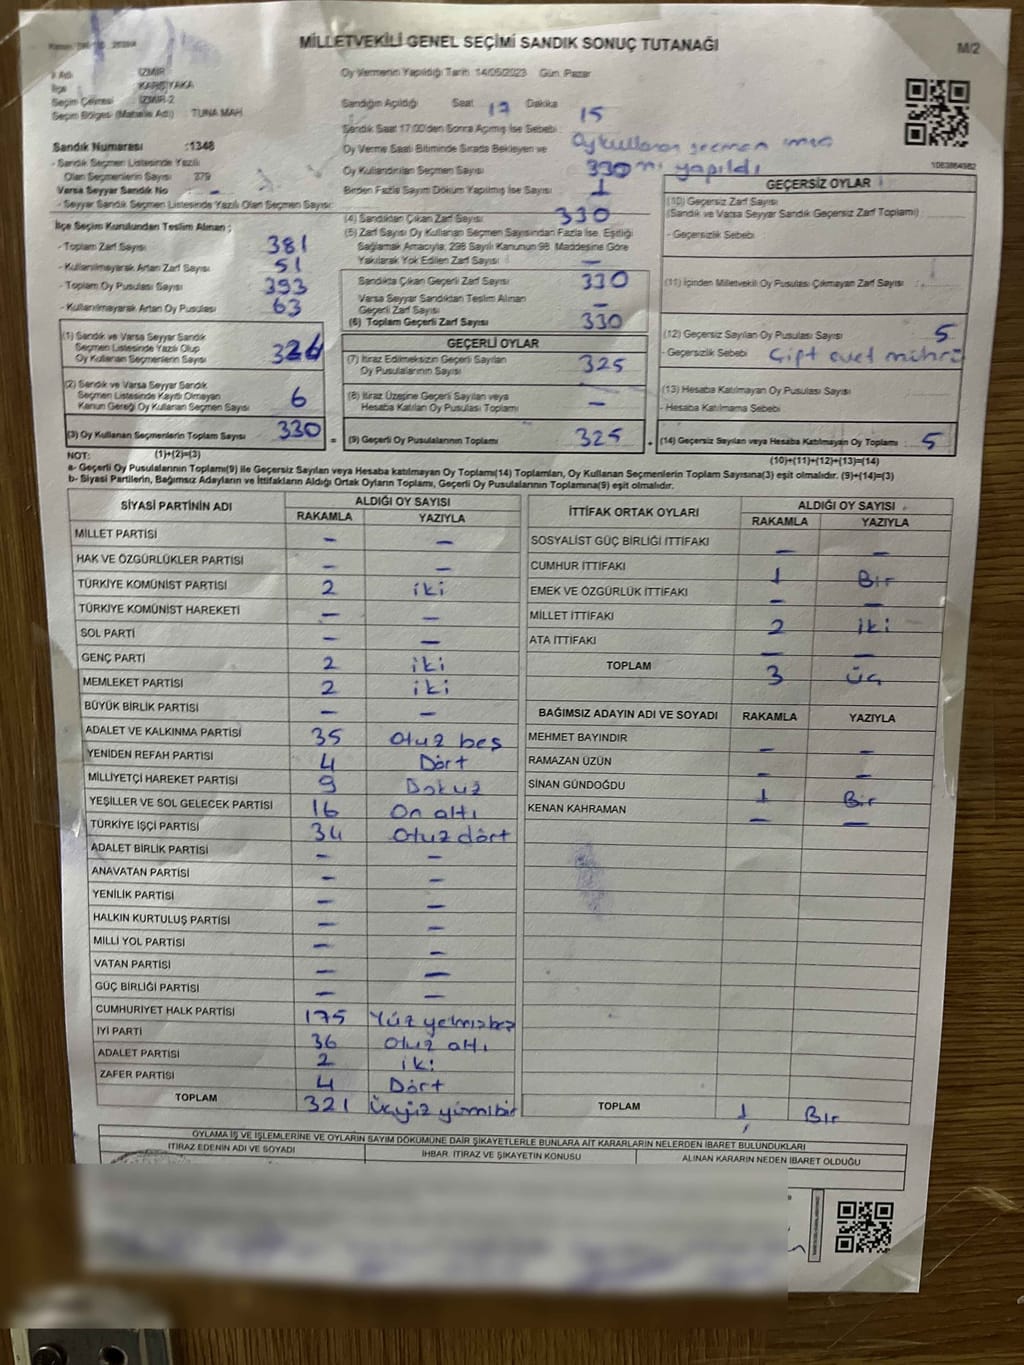 MİLLETVEKİLİ GENEL SEÇİMİ SANDIK SONUÇ TUTANAĞI
M/2
İl Adı İZMİR
İlçe KARŞIYAKA
Seçim Çevresi İZMİR-2
Seçim Bölgesi (Mahalle Adı) : TUNA MAH
Sandık Numarası :1348
- Sandık Seçmen Listesinde Yazılı
Olan Seçmenlerin Sayısı 379
Varsa Seyyar Sandık No -
- Seyyar Sandık Seçmen Listesinde Yazılı Olan Seçmen Sayısı:
Oy Vermenin Yapıldığı Tarih 14/05/2023 Gün. Pazar
Sandığın Açıldığı Saat 17 Dakika 15
Sandık Saat 17:00'den Sonra Açılmış İse Sebebi :
Oy Verme Saati Bitiminde Sırada Bekleyen ve
Oy Kullandırılan Seçmen Sayısı 330 mı yapıldı
Birden Fazla Sayım Döküm Yapılmış İse Sayısı 1
1083864982
İlçe Seçim Kurulundan Teslim Alınan ;
- Toplam Zarf Sayısı 381
- Kullanılmayarak Artan Zarf Sayısı 51
- Toplam Oy Pusulası Sayısı 393
- Kullanılmayarak Artan Oy Pusulası 63
(1) Sandık ve Varsa Seyyar Sandık
Seçmen Listesinde Yazılı Olup
Oy Kullanan Seçmenlerin Sayısı 324
(2) Sandık ve Varsa Seyyar Sandık
Seçmen Listesinde Kayıtlı Olmayan
Kanun Gereği Oy Kullanan Seçmen Sayısı 6
(3) Oy Kullanan Seçmenlerin Toplam Sayısı 330 =
(4) Sandıktan Çıkan Zarf Sayısı 330
(5) Zarf Sayısı Oy Kullanan Seçmen Sayısından Fazla İse, Eşitliği
Sağlamak Amacıyla, 298 Sayılı Kanunun 98. Maddesine Göre
Yakılarak Yok Edilen Zarf Sayısı -
Sandıkta Çıkan Geçerli Zarf Sayısı 330
Varsa Seyyar Sandıktan Teslim Alınan
Geçerli Zarf Sayısı -
(6) Toplam Geçerli Zarf Sayısı 330
GEÇERLİ OYLAR
(7) İtiraz Edilmeksizin Geçerli Sayılan
Oy Pusulalarının Sayısı 325
(8) İtiraz Üzerine Geçerli Sayılan veya
Hesaba Katılan Oy Pusulası Toplamı -
(9) Geçerli Oy Pusulalarının Toplamı 325
GEÇERSİZ OYLAR
(10) Geçersiz Zarf Sayısı
(Sandık ve Varsa Seyyar Sandık Geçersiz Zarf Toplamı)
- Geçersizlik Sebebi
(11) İçinden Milletvekili Oy Pusulası Çıkmayan Zarf Sayısı
(12) Geçersiz Sayılan Oy Pusulası Sayısı 5
- Geçersizlik Sebebi Çift evet mührü
(13) Hesaba Katılmayan Oy Pusulası Sayısı
- Hesaba Katılmama Sebebi
(14) Geçersiz Sayılan veya Hesaba Katılmayan Oy Toplamı 5
NOT: (1)+(2)=(3) (10)+(11)+(12)+(13)=(14)
a- Geçerli Oy Pusulalarının Toplamı(9) ile Geçersiz Sayılan veya Hesaba katılmayan Oy Toplamı(14) Toplamları, Oy Kullanan Seçmenlerin Toplam Sayısına(3) eşit olmalıdır. (9)+(14)=(3)
b- Siyasi Partilerin, Bağımsız Adayların ve İttifakların Aldığı Ortak Oyların Toplamı, Geçerli Oy Pusulalarının Toplamına(9) eşit olmalıdır.
SİYASİ PARTİNİN ADI ALDIĞI OY SAYISI
RAKAMLA YAZIYLA
MİLLET PARTİSİ - -
HAK VE ÖZGÜRLÜKLER PARTİSİ - -
TÜRKİYE KOMÜNİST PARTİSİ 2 iki
TÜRKİYE KOMÜNİST HAREKETİ - -
SOL PARTİ - -
GENÇ PARTİ 2 iki
MEMLEKET PARTİSİ 2 iki
BÜYÜK BİRLİK PARTİSİ - -
ADALET VE KALKINMA PARTİSİ 35 Otuz beş
YENİDEN REFAH PARTİSİ 4 Dört
MİLLİYETÇİ HAREKET PARTİSİ 9 Dokuz
YEŞİLLER VE SOL GELECEK PARTİSİ 16 On altı
TÜRKİYE İŞÇİ PARTİSİ 34 Otuz dört
ADALET BİRLİK PARTİSİ - -
ANAVATAN PARTİSİ - -
YENİLİK PARTİSİ - -
HALKIN KURTULUŞ PARTİSİ - -
MİLLİ YOL PARTİSİ - -
VATAN PARTİSİ - -
GÜÇ BİRLİĞİ PARTİSİ - -
CUMHURİYET HALK PARTİSİ 175 Yüz yetmişbeş
İYİ PARTİ 36 Otuz altı
ADALET PARTİSİ 2 iki
ZAFER PARTİSİ 4 Dört
TOPLAM 321 Üçyüz yirmibir
İTTİFAK ORTAK OYLARI ALDIĞI OY SAYISI
RAKAMLA YAZIYLA
SOSYALİST GÜÇ BİRLİĞİ İTTİFAKI - -
CUMHUR İTTİFAKI 1 Bir
EMEK VE ÖZGÜRLÜK İTTİFAKI - -
MİLLET İTTİFAKI 2 iki
ATA İTTİFAKI - -
TOPLAM 3 üç
BAĞIMSIZ ADAYIN ADI VE SOYADI RAKAMLA YAZIYLA
MEHMET BAYINDIR - -
RAMAZAN ÜZÜN - -
SİNAN GÜNDOĞDU 1 Bir
KENAN KAHRAMAN - -
TOPLAM 1 Bir
OYLAMA İŞ VE İŞLEMLERİNE VE OYLARIN SAYIM DÖKÜMÜNE DAİR ŞİKAYETLERLE BUNLARA AİT KARARLARIN NELERDEN İBARET BULUNDUKLARI
İTİRAZ EDENİN ADI VE SOYADI İHBAR, İTİRAZ VE ŞİKAYETİN KONUSU ALINAN KARARIN NEDEN İBARET OLDUĞU